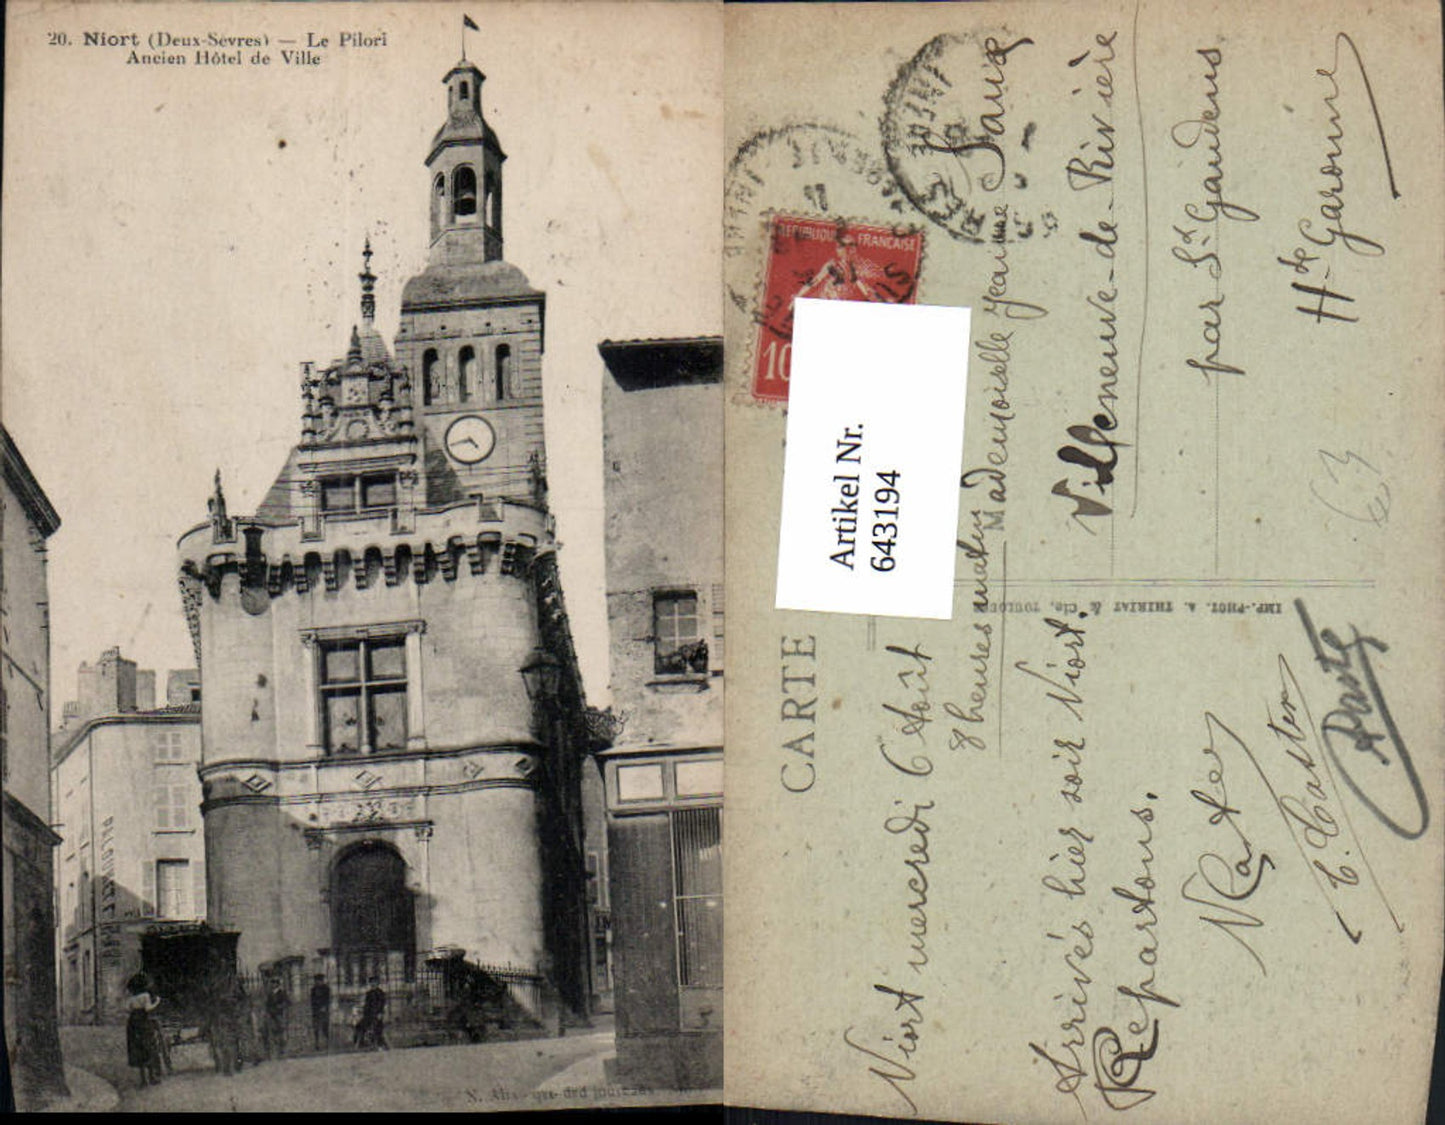 20. Niort (Deux-Sèvres) — Le Pilori
Ancien Hôtel de Ville
CARTE
REPUBLIQUE FRANÇAISE
10
Artikel Nr.
643194
Niort mercredi 6 Août
8 heures matin
Arrivés hier soir Niort.
Repartons.
Mademoiselle Jeanne
Villeneuve-de-Rivière
par St Gaudens
Hte Garonne
IMP.-PHOT. A. THIRIAT & Cie, TOULOUSE
63